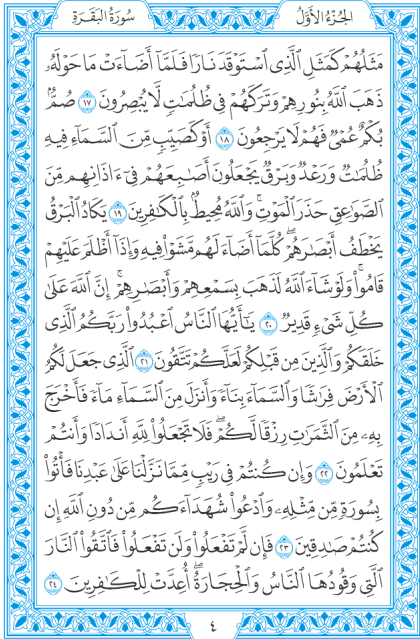 الجزء الأول
سورة البقرة
مَثَلُهُمْ كَمَثَلِ ٱلَّذِي ٱسْتَوْقَدَ نَارًا فَلَمَّآ أَضَآءَتْ مَا حَوْلَهُۥ
ذَهَبَ ٱللَّهُ بِنُورِهِمْ وَتَرَكَهُمْ فِي ظُلُمَٰتٍ لَّا يُبْصِرُونَ ١٧ صُمٌّۢ
بُكْمٌ عُمْيٌ فَهُمْ لَا يَرْجِعُونَ ١٨ أَوْ كَصَيِّبٍ مِّنَ ٱلسَّمَآءِ فِيهِ
ظُلُمَٰتٌ وَرَعْدٌ وَبَرْقٌ يَجْعَلُونَ أَصَٰبِعَهُمْ فِيٓ ءَاذَانِهِم مِّنَ
ٱلصَّوَٰعِقِ حَذَرَ ٱلْمَوْتِۚ وَٱللَّهُ مُحِيطٌۢ بِٱلْكَٰفِرِينَ ١٩ يَكَادُ ٱلْبَرْقُ
يَخْطَفُ أَبْصَٰرَهُمْۖ كُلَّمَآ أَضَآءَ لَهُم مَّشَوْا۟ فِيهِ وَإِذَآ أَظْلَمَ عَلَيْهِمْ
قَامُوا۟ۚ وَلَوْ شَآءَ ٱللَّهُ لَذَهَبَ بِسَمْعِهِمْ وَأَبْصَٰرِهِمْۚ إِنَّ ٱللَّهَ عَلَىٰ
كُلِّ شَيْءٍ قَدِيرٌ ٢٠ يَٰٓأَيُّهَا ٱلنَّاسُ ٱعْبُدُوا۟ رَبَّكُمُ ٱلَّذِي
خَلَقَكُمْ وَٱلَّذِينَ مِن قَبْلِكُمْ لَعَلَّكُمْ تَتَّقُونَ ٢١ ٱلَّذِي جَعَلَ لَكُمُ
ٱلْأَرْضَ فِرَٰشًا وَٱلسَّمَآءَ بِنَآءً وَأَنزَلَ مِنَ ٱلسَّمَآءِ مَآءً فَأَخْرَجَ
بِهِۦ مِنَ ٱلثَّمَرَٰتِ رِزْقًا لَّكُمْۖ فَلَا تَجْعَلُوا۟ لِلَّهِ أَندَادًا وَأَنتُمْ
تَعْلَمُونَ ٢٢ وَإِن كُنتُمْ فِي رَيْبٍ مِّمَّا نَزَّلْنَا عَلَىٰ عَبْدِنَا فَأْتُوا۟
بِسُورَةٍ مِّن مِّثْلِهِۦ وَٱدْعُوا۟ شُهَدَآءَكُم مِّن دُونِ ٱللَّهِ إِن
كُنتُمْ صَٰدِقِينَ ٢٣ فَإِن لَّمْ تَفْعَلُوا۟ وَلَن تَفْعَلُوا۟ فَٱتَّقُوا۟ ٱلنَّارَ
ٱلَّتِي وَقُودُهَا ٱلنَّاسُ وَٱلْحِجَارَةُۖ أُعِدَّتْ لِلْكَٰفِرِينَ ٢٤
٤